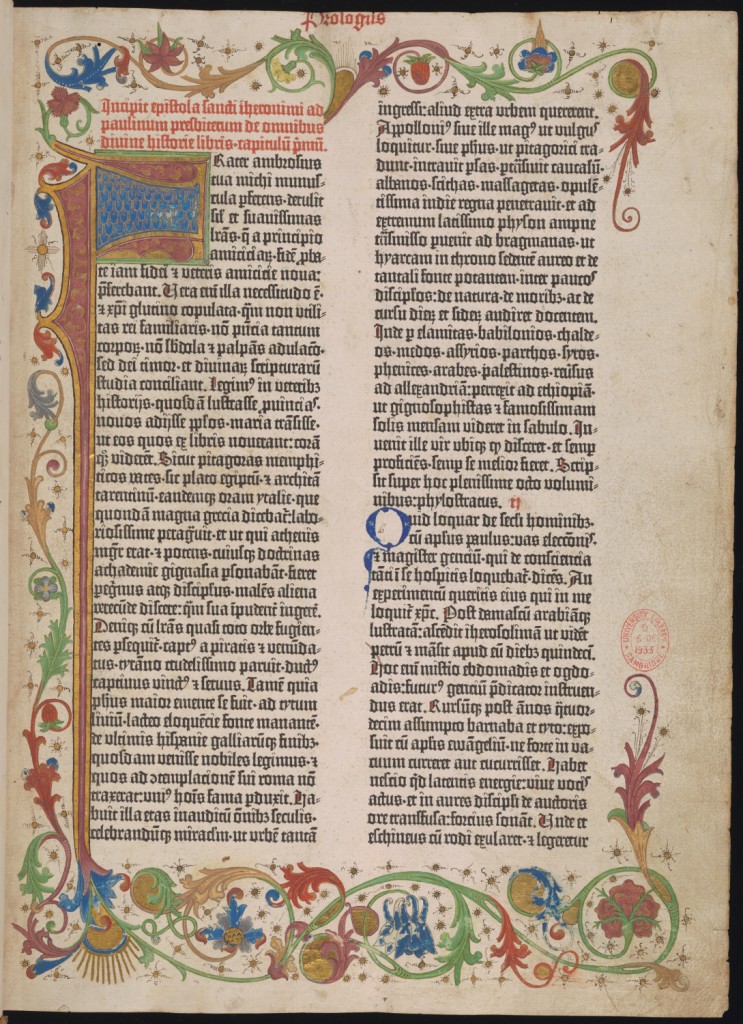 Prologus
Incipit epistola sancti iheronimi ad
paulinum presbiterum de omnibus
divine historie libris·capitulū p̄mū.
Frater ambrosius
tua michi munus-
cula ꝑferens·detulit
sil̄ et suavissimas
lr̄as·q̄ a principio
amiciciaꝝ·fidē ꝓba-
te iam fidei ⁊ veteris amicicie noua:
p̄ferebant. Uera em̄ illa necessitudo ē·
⁊ xp̄i glutino copulata·qm̄ non utili-
tas rei familiaris·nō pn̄tia tantum
corpoꝝ·nō sb̄dola ⁊ palpās adulacō·
sed dei timor·et divinaꝝ scripturarū
studia conciliant. Legimꝰ in veteribꝫ
historijs·quosdā lustrasse ꝓuinciaˢ·
novos adijsse ppl̄os·maria trāsisse·
ut eos quos ex libris noverant: corā
qꝫ viderēt. Sicut pitagoras memphi-
ticos vates·sic plato egiptū·⁊ architā
tarentinū·eandemqꝫ oram ytalie·que
quondā magna grecia dicebat̄: labo-
riosissime peragͥuit·et ut qui athenis
mgr̄ erat·⁊ potens·cuiusqꝫ doctrinas
achademie gignasia ꝑsonabāt·fieret
peg̊rinus atqꝫ discipulus·malēs aliena
verecūde discere: qm̄ sua īpudent̄ īgerē.
Deniqꝫ cū lr̄as quasi toto orbe fugien-
tes ꝑsequit̄·captꝰ a piratis ⁊ venūda-
tus·tyrāno crudelissimo paruit·ductꝰ
captiuus vinctꝰ ⁊ seruus. Tamē quia
ph̄us maior emente se fuit·ad tytum
liuiū·lacteo eloquēcie fonte manantē·
de vltimis hispanie galliarūqꝫ finibꝫ·
quosdam venisse nobiles legimus·⁊
quos ad ↄtemplacionē sui roma nō
traxerat: vniꝰ hoīs fama ꝑduxit. Ha-
buit illa etas inauditū ōnibꝫ seculis·
celebrandūqꝫ miraclm̄·ut vrbē tantā
ingressi: aliud extra vrbem quererent.
Appolloniꝰ siue ille magꝰ ut vulgꝰ
loquitur·siue ph̄us·ut pitagorici tra-
dunt·intrauit ꝑsas·ꝑtͣnsiuit caucasū·
albanos·scithas·massagetas·opulē-
tissima indie regna penetrauit·et ad
extremum latissimo physon amne
trͣnsmisso ꝑuenit ad bragmanas·ut
hyarcam in throno sedentē aureo et de
tantali fonte potantem·inter paucoˢ
discipl̄os: de natura·de moribꝫ·ac de
cursu dieꝝ et sideꝝ audiret docentem.
Inde ꝑ elamitas·babilonios·chalde-
os·medos·assyrios·parthos·syros·
phenices·arabes·palestinos·reūsus
ad allexandriā: perrexit ad ethiopiā·
ut gignosophistas ⁊ famosissimam
solis mensam videret in sabulo. In-
uenit ille vir vbiqꝫ qͩ disceret·et semꝑ
proficiēs·semꝑ se melior fieret. Scrip-
sit super hoc plenissime octo volumi-
nibus: phylostratus. ij
Quid loquar de secl̄i hominibꝫ·
cū aplus paulus: vas elecconiˢ·
⁊ magister genciū·qui de consciencia
tāti ī se hospitis loquebat̄·dicēs. An
experimentū queritis eius qui in me
loquit̄ xp̄c. Post damascū arabiāqꝫ
lustratā: ascēdit iherosolimā ut vidēt
petrū ⁊ māsit apud eū diebꝫ quindecī.
Hoc em̄ misterio ebdomadis et ogdo-
adis: futurꝰ genciū p̄dicator instruen-
dus erat. Rursūqꝫ post ānos qͣtuor-
decim assumpto barnaba et tyto: expo-
suit cū apl̄is ewāgeliū·ne forte in va-
cuum curreret aut cucurrisset. Habet
nescio qͩ latentis energie: viue vociˢ
actus·et in aures discipl̄i de auctoris
ore transfusa: forcius sonāt. Unde et
eschineus cū rodi exularet·⁊ legeretur
UNIVERSITY LIBRARY
5 DE
1933
CAMBRIDGE